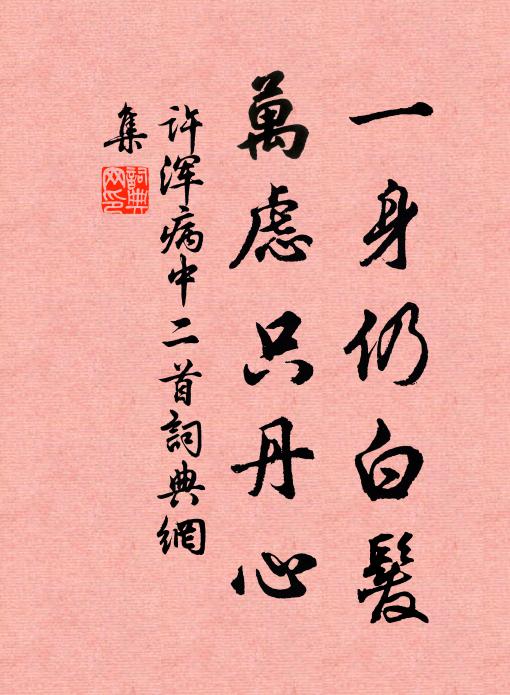 一身仍白髮
萬慮只丹心
许浑病中二首詞典網
集
詞典
网印